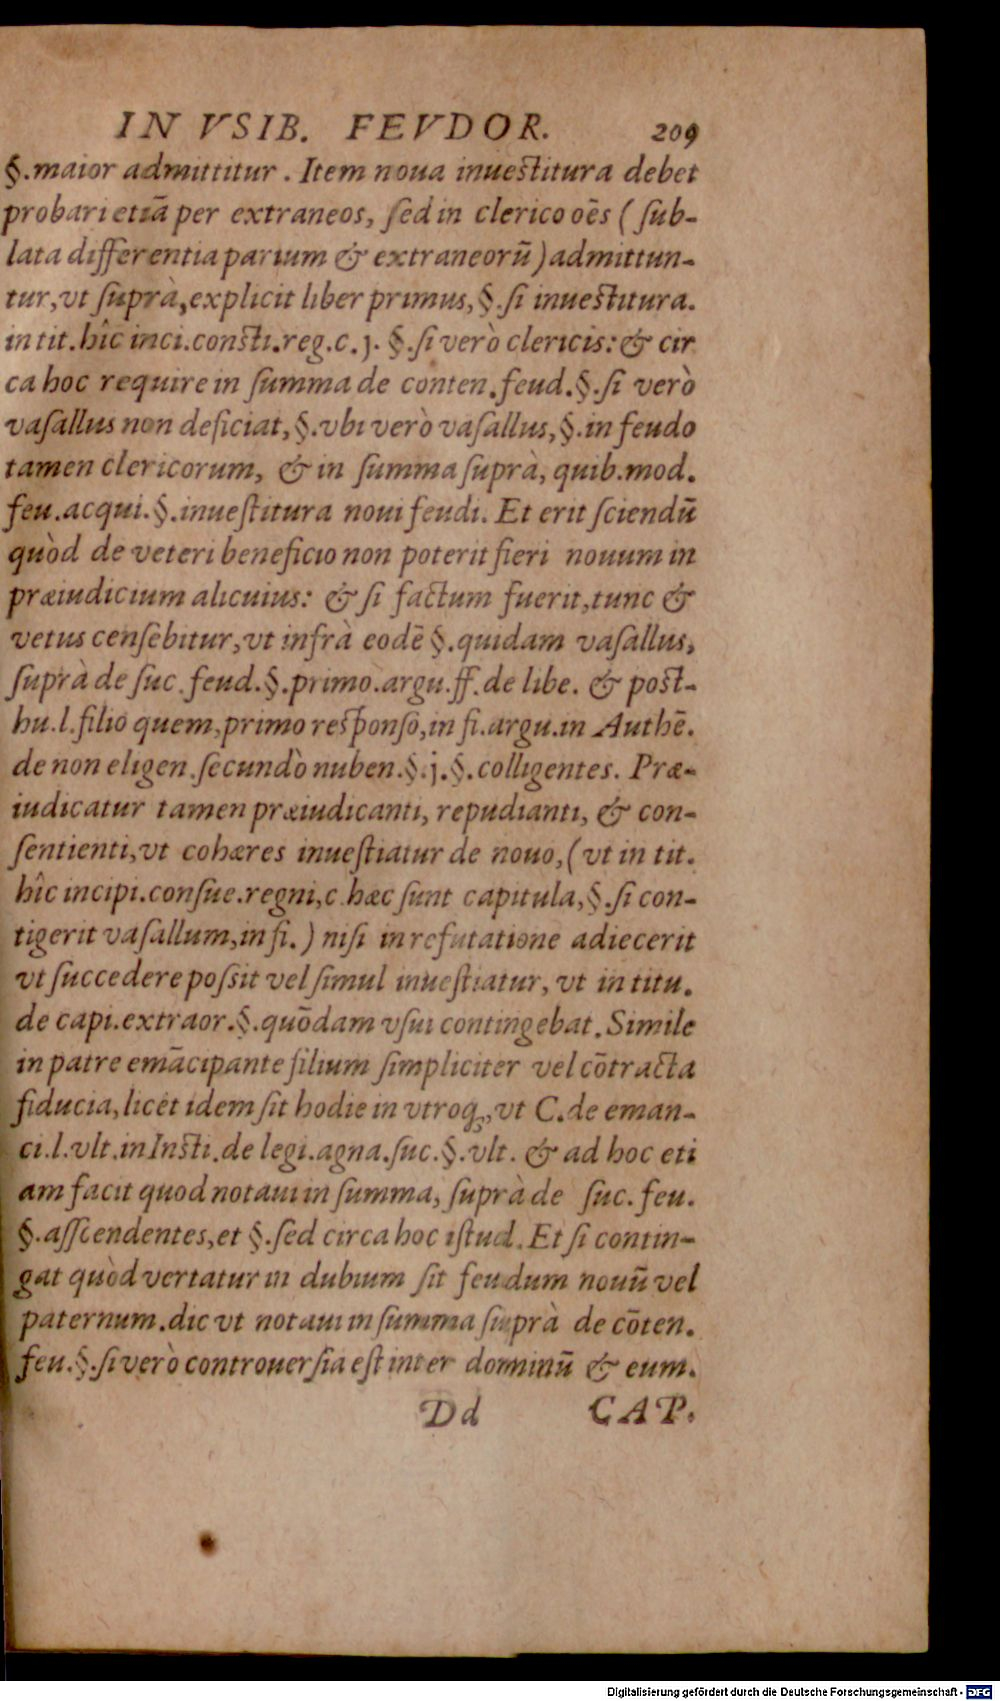 IN VSIB. FEVDOR. 209
§.maior admittitur. Item noua inuestitura debet
probari etiā per extraneos, ſed in clerico oēs (ſub-
lata differentia parium & extraneorū) admittun-
tur, vt ſuprà, explicit liber primus, §.ſi inuestitura.
in tit. hîc inci.consti.reg.c.j. §.ſi verò clericis: & cir
ca hoc require in ſumma de conten.feud.§.ſi verò
vaſallus non deficiat, §.vbi verò vaſallus, §.in feudo
tamen clericorum, & in ſumma ſuprà, quib.mod.
feu.acqui.§.inueſtitura noui feudi. Et erit ſciendū
quòd de veteri beneficio non poterit fieri nouum in
præiudicium alicuius: & ſi factum fuerit, tunc &
vetus cenſebitur, vt infrà eodē §.quidam vaſallus,
ſuprà de ſuc.feud.§.primò.argu.ff.de libe. & post-
hu.l.filio quem, primo reſponſo, in fi.argu.in Authē.
de non eligen.ſecundò nuben.§.j.§.colligentes. Præ-
iudicatur tamen præiudicanti, repudianti, & con-
ſentienti, vt cohæres inueſtiatur de nouo, (vt in tit.
hîc incipi.conſue.regni, c.hæc ſunt capitula, §.ſi con-
tigerit vaſallum, in fi.) niſi in refutatione adiecerit
vt ſuccedere poſsit vel ſimul inueſtiatur, vt in titu.
de capi.extraor.§.quōdam vſui contingebat. Simile
in patre emācipante filium ſimpliciter vel cōtracta
fiducia, licèt idem ſit hodie in vtroq;, vt C.de eman-
ci.l.vlt.in Insti.de legi.agna.ſuc.§.vlt. & ad hoc eti
am facit quod notaui in ſumma, ſuprà de ſuc.feu.
§.aſſcendentes, et §.ſed circa hoc iſtud. Et ſi contin-
gat quòd vertatur in dubium ſit feudum nouū vel
paternum. dic vt notaui in ſumma ſuprà de cōten.
feu.§.ſi verò controuerſia eſt inter dominū & eum.
Dd CAP.
Digitalisierung gefördert durch die Deutsche Forschungsgemeinschaft - DFG